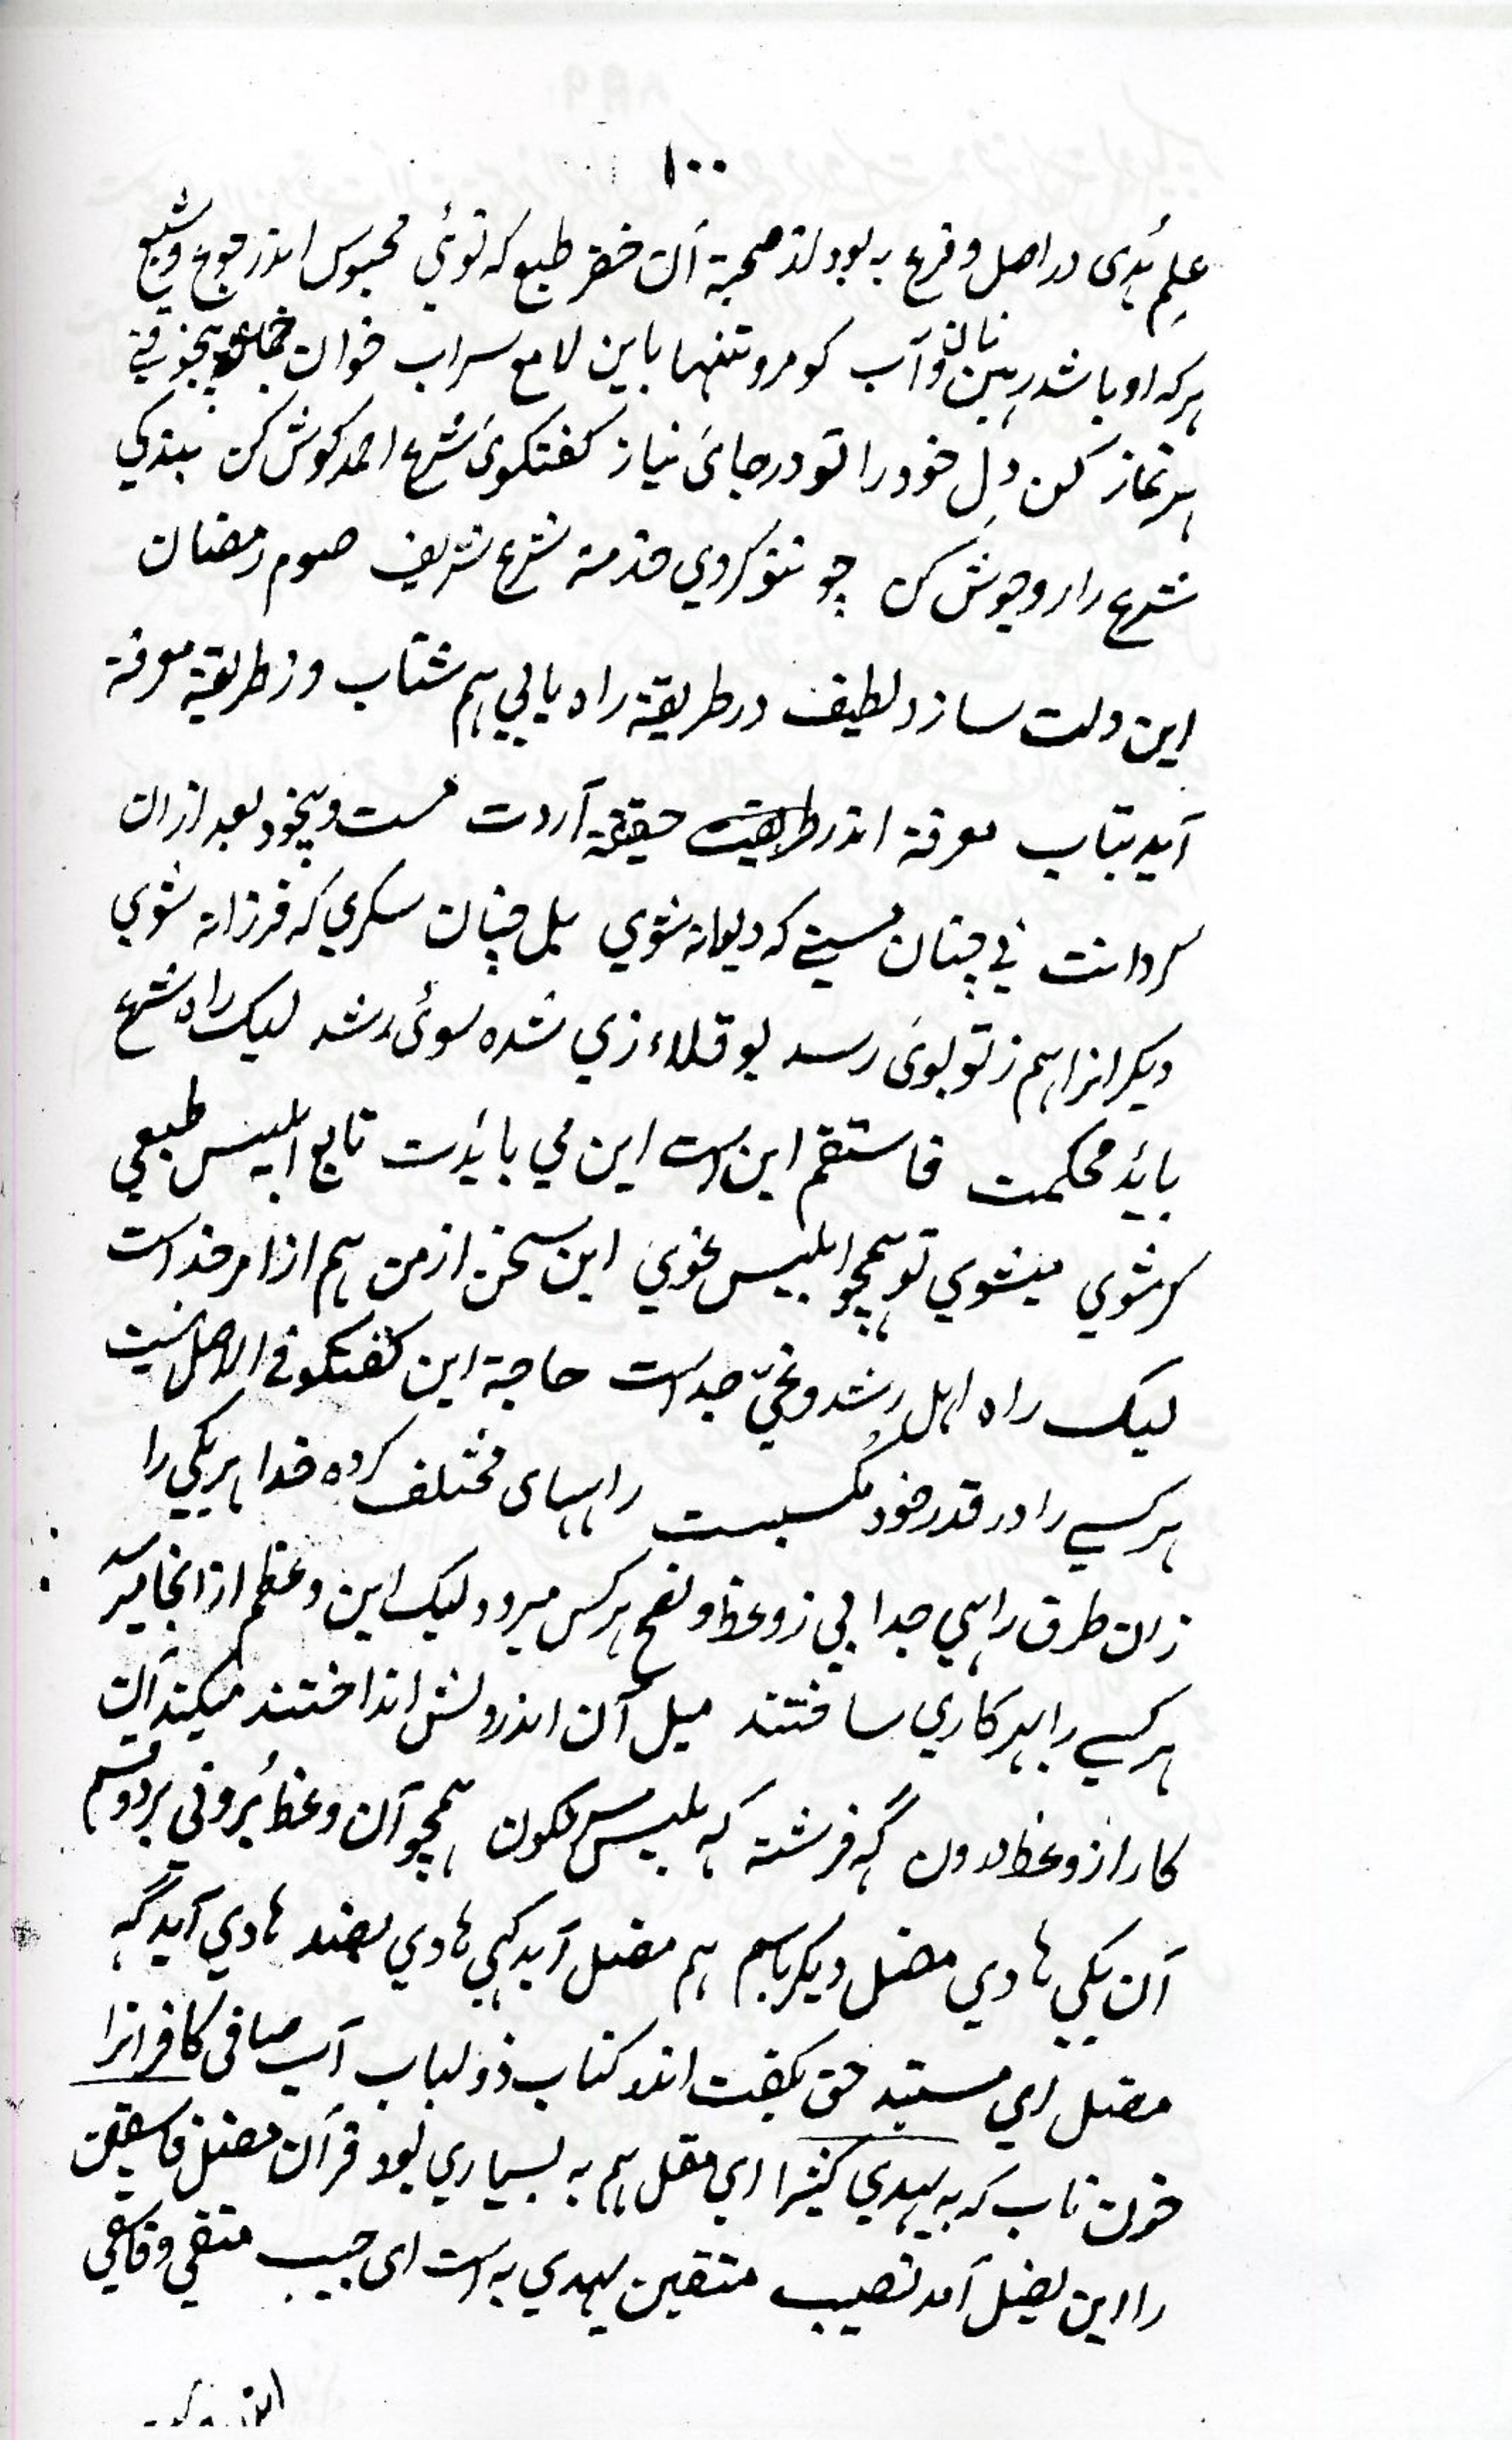 ١٠٠
علم هُدی در اصل و فرع به بود لذ صحبة آن خضر طبع که توئي محبوس اندر جوع و شبع
هرکه او باشد رهین نان و آب کو مرو تنها باین لامع سراب خوان
هر نماز کن دِل خود را تو در جائ نیاز کفتکوئ شرع احمد کوش کن بندکي
شرع را رو جوش کن چو تنو کردي خدمة شرع شریف صوم رمضان
این دلت سازد لطیف در طریقة راه یابي هم شتاب وز طریقة معرفة
آید بتاب معرفة اندر طریقت حقیقة آردت مست و بیخود بعد ازان
کرداندت ني چنان مستي که دیوانه شوي بل چنان سکري که فرزانه شوي
دیکرانرا هم ز تو بوئ رسد بو قلاءزي شده سوئ رشد لیک راه شرع
بائد محکمت فاستقم این است این مي بایدت تابع ابلیس طبعي
کر شوي میشوي تو همچو ابلیس غوي این سخن از من هم از امر خداست
لیک راه اهل رشد و غيّ جداست حاجة این کفتکو في الاصل نیست
هر کسے را در قدر خود مکسبیست راههای مختلف کرده خدا هر یکي را
زان طرق راهي جدا ني ز وعظ و نصح هر کس میرود لیک این وعظم از انجا میرسد
هر کسے را بهر کاري ساختند میل آن اندر دلش انداختند میکند آن
کار از وعظ درون گه فرشته که بلیس کون همچو آن وعظ برونی بر دو قسم
آن یکي هادي مضل دیکر باسم هم مضل آید کهي هادي هادي آید گه
مضل اي مستبد حق بکفت اندر کتاب ذو لباب آب صافی کافرانرا
خون ناب که به یهدي کثیرا اي مقل هم به بسیاري بود قرآن مضل فاسقین
را این یضل آمد نصیب متقین یهدي به است ای حبیب متقي و فاسقي